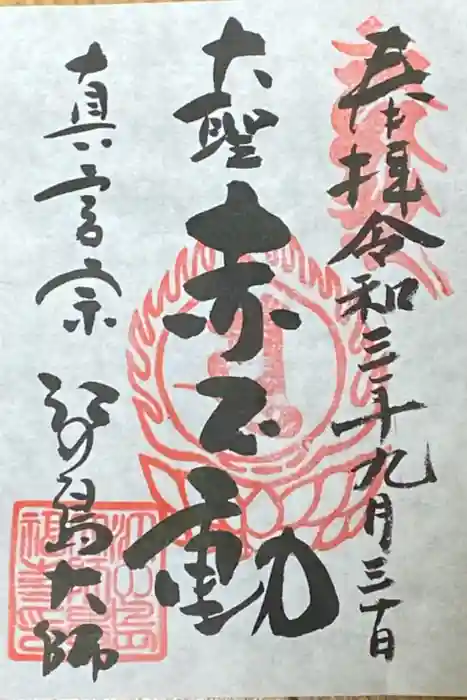 奉拝 令和三年九月三十日
大聖 赤不動
真言宗 江の島大師